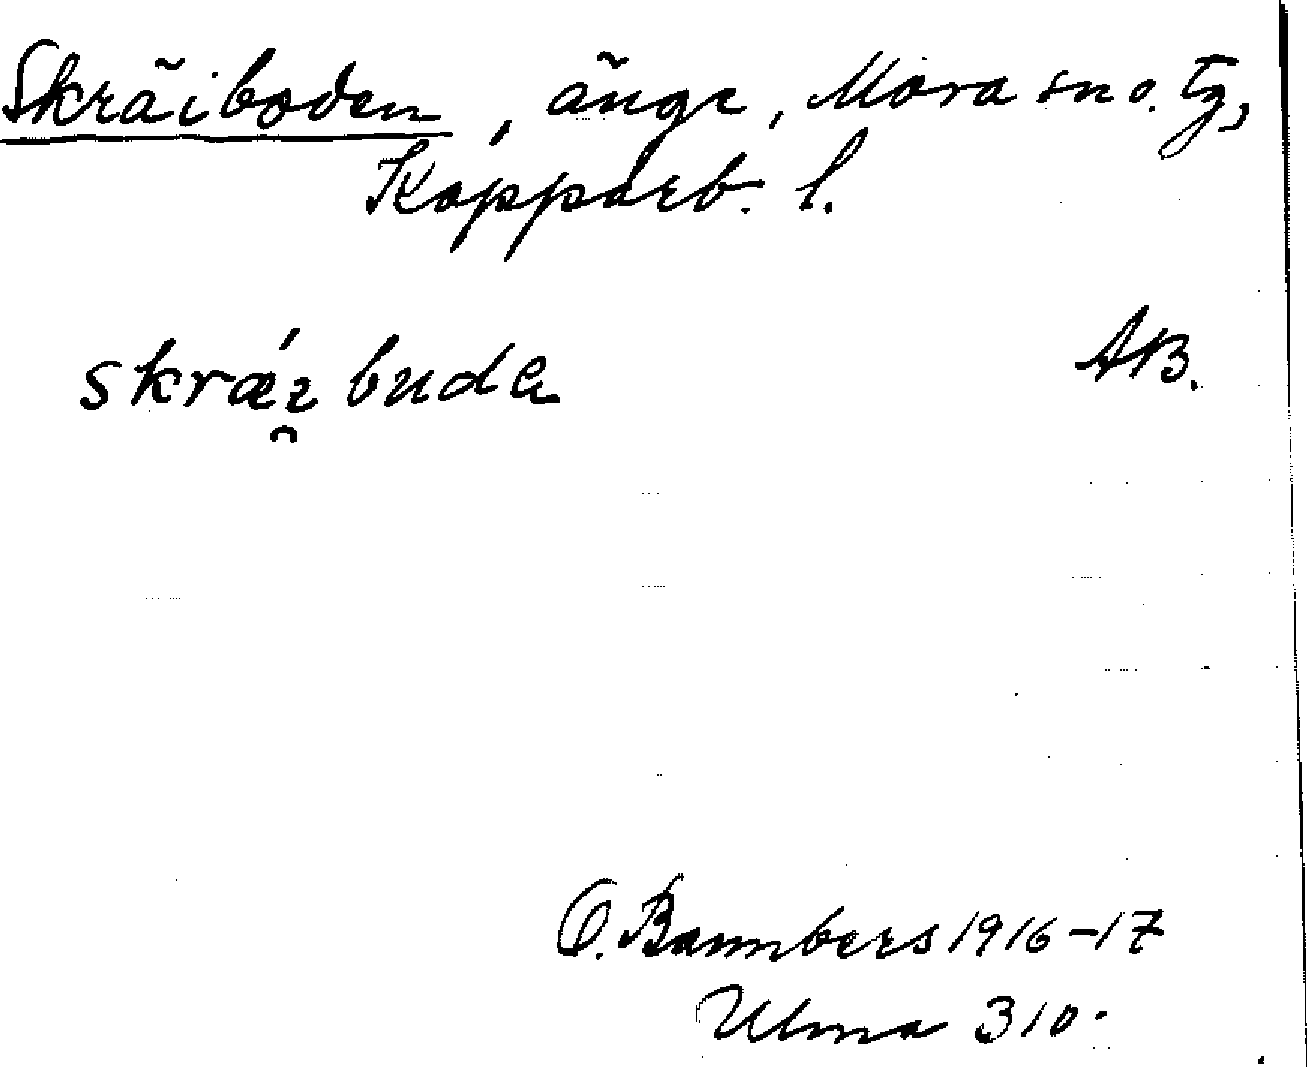 Skräiboden, änge, Mora sn o. tg,
Kopparb. l.
skrǽɪ̯ buda AB.
O. Bannbers 1916-17
Ulma 310.